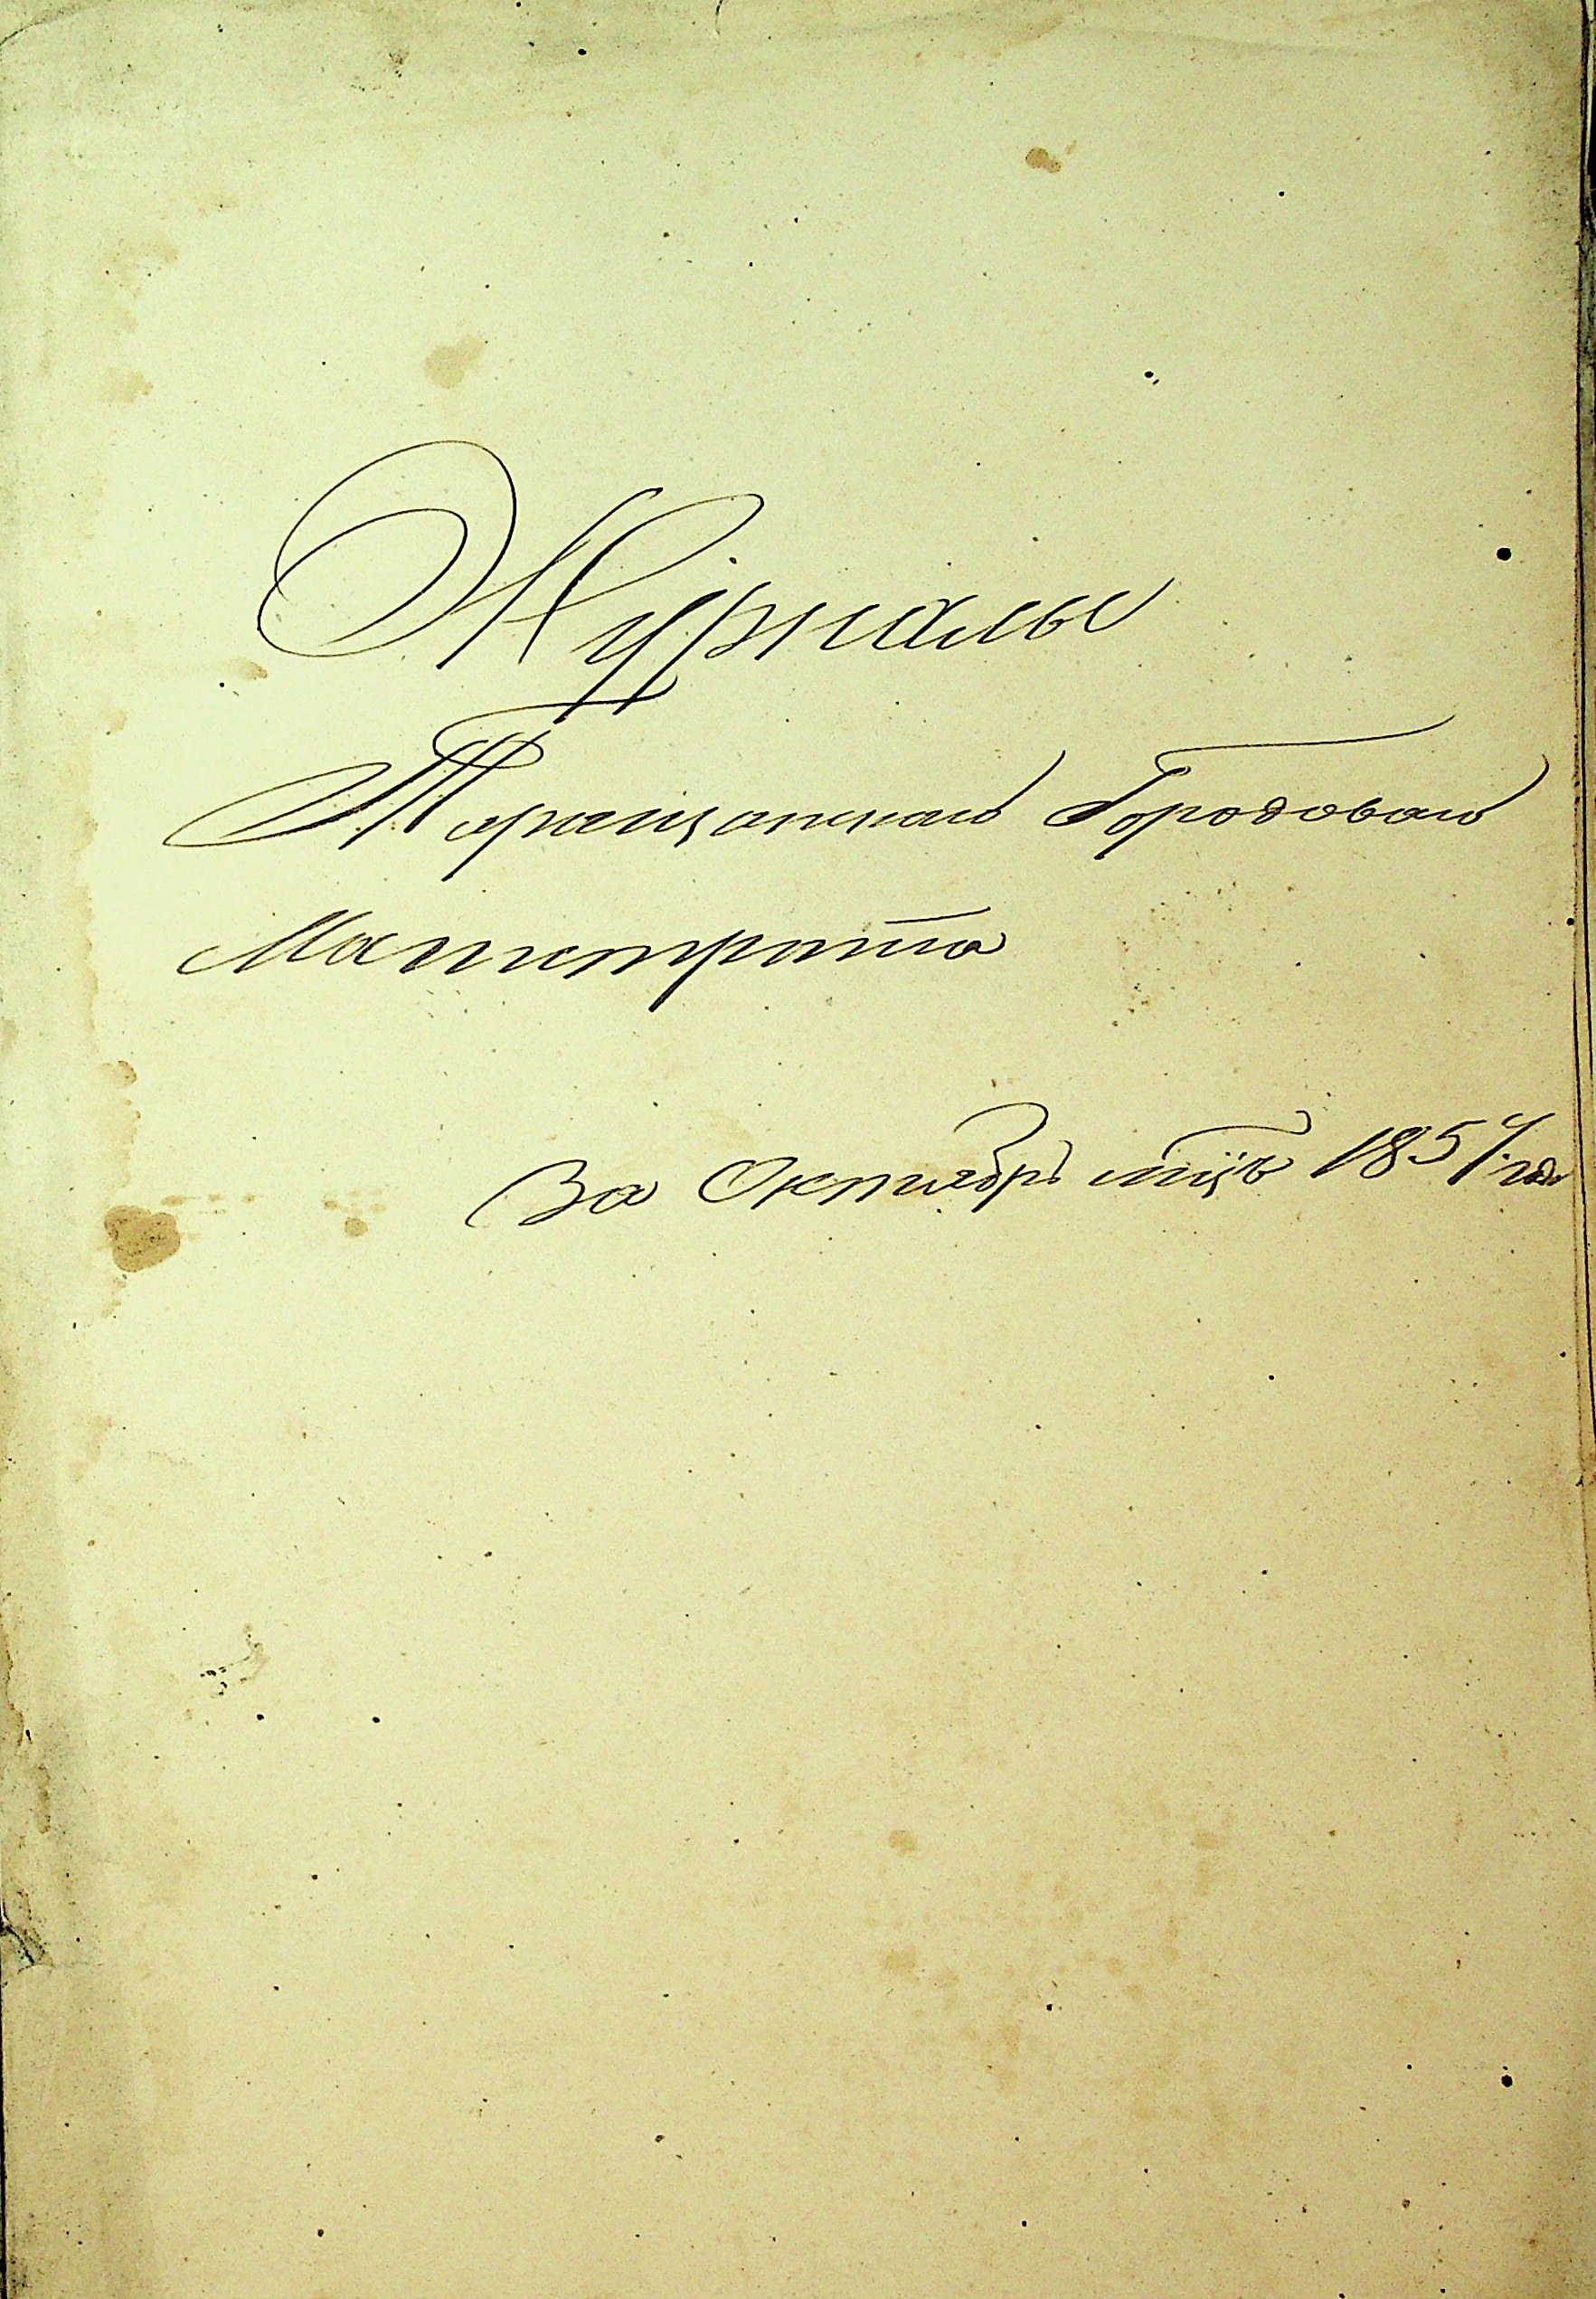 Журналы
Таращанскаго Городоваго
Магистрата
За Октябрь мц̃ъ 1857 года